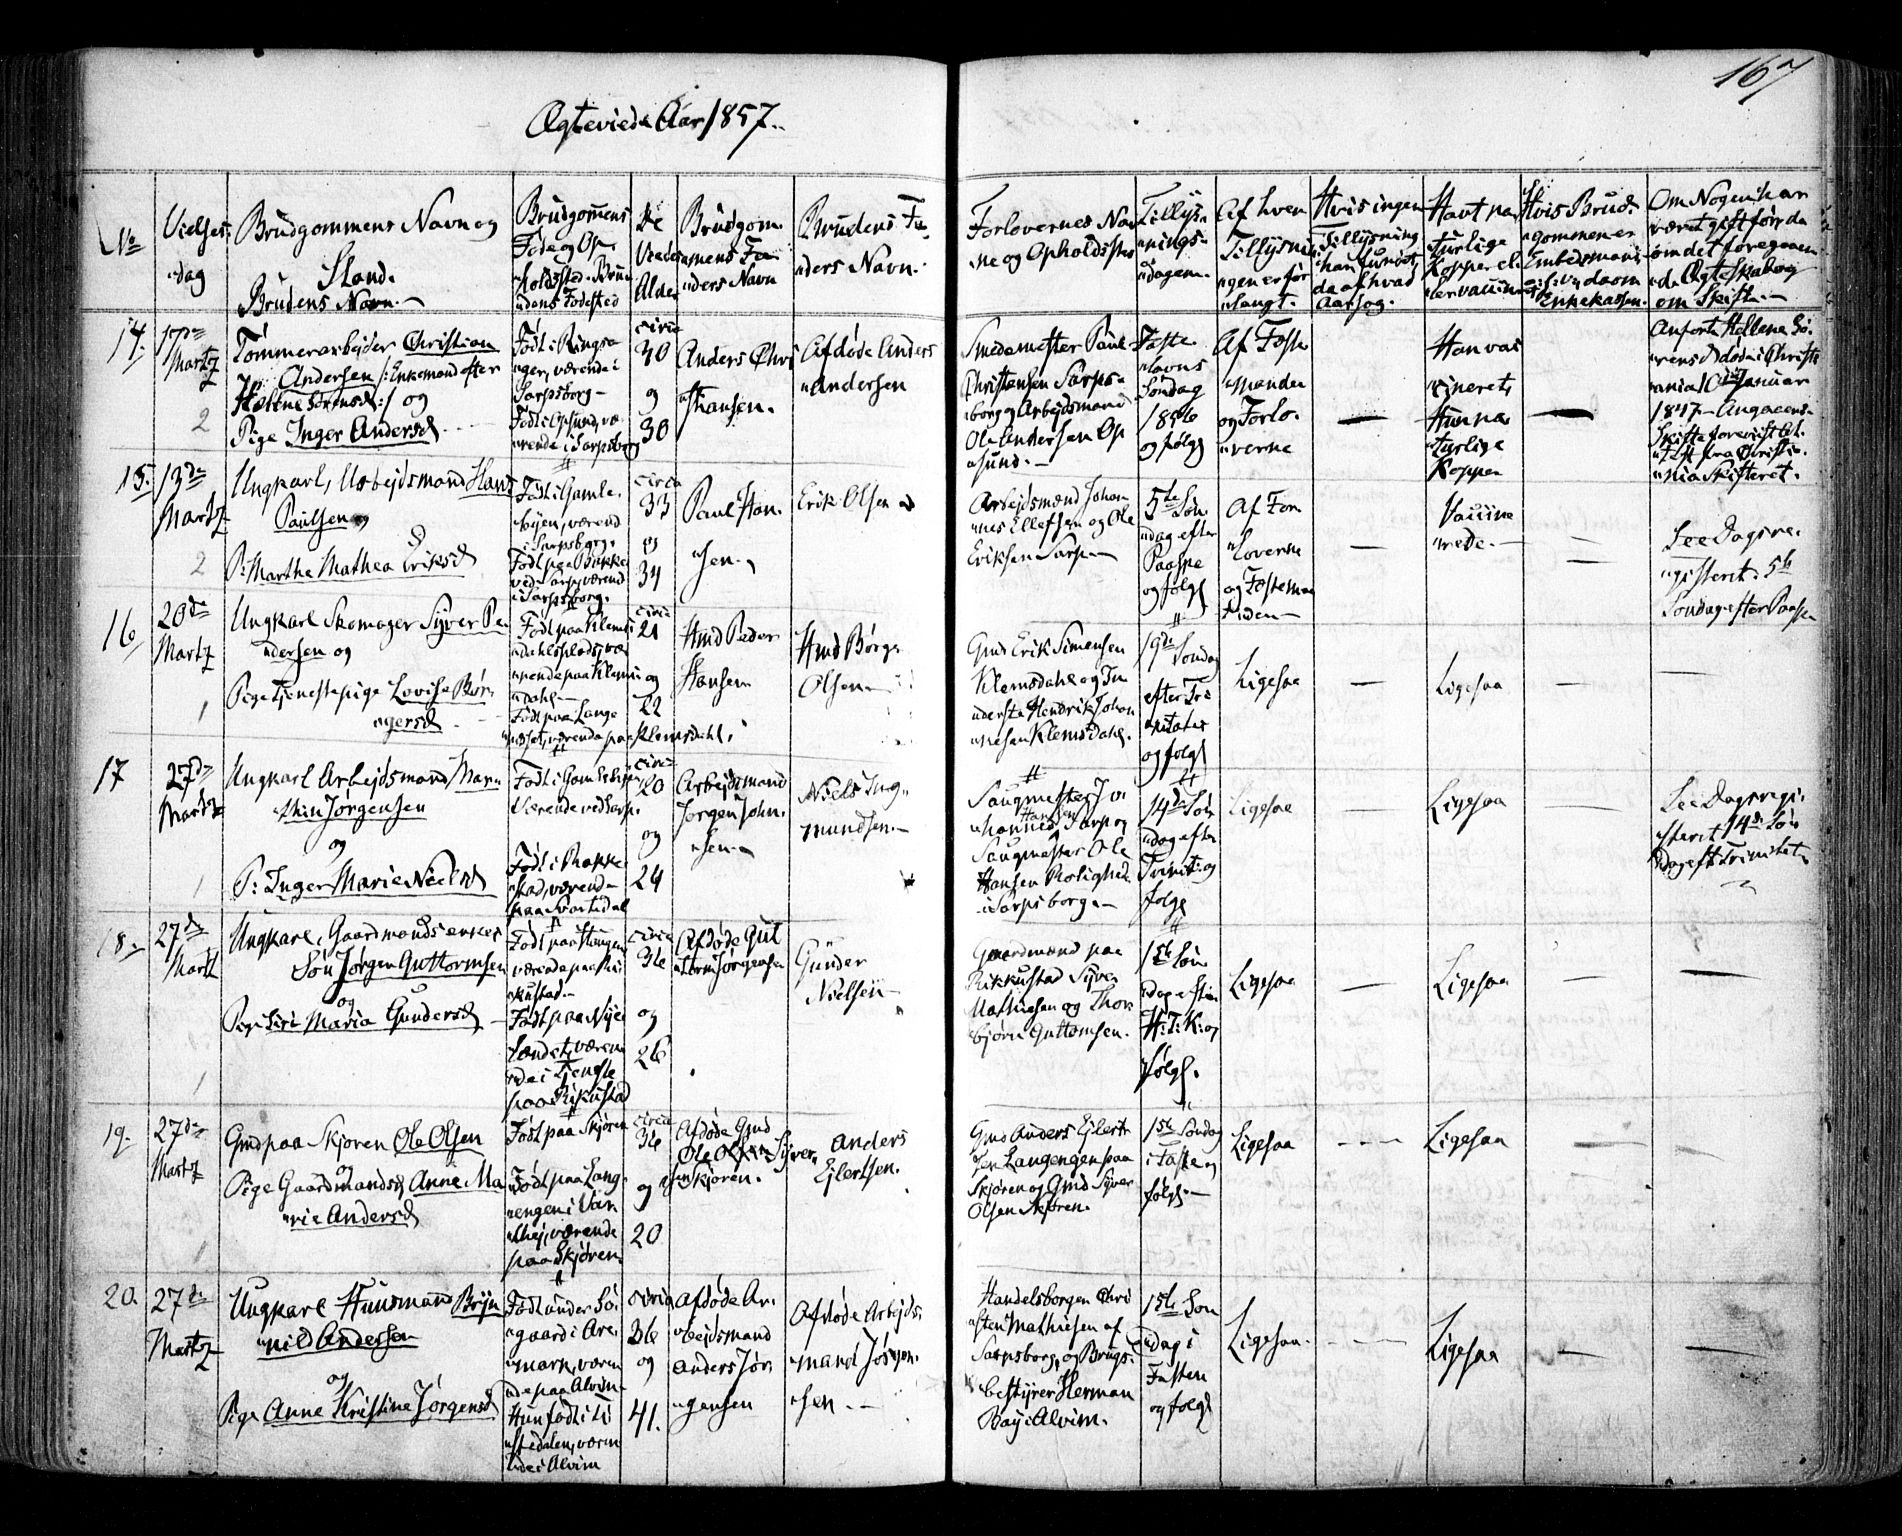 167
Ægteviede Aar 1857.
No
Vielses-
dag
Brudgommens Navn og
Stand.
Brudens Navn.
Brudgommens
Føde og Op-
holdssted. Bru-
dens Fødested
De
Viedes
Alder
Brudgom-
mens Fa-
ders Navn
Brudens Fa-
ders Navn.
Forlovernes Nav-
ne og Opholdssted
Tillys-
nings-
dagen.
Af hvem
Tillysnin-
gen er for-
langt.
Hvis ingen
Tillysning
har fundet
da af hvad
Aarsag.
Havt na-
turlige
Kopper el-
ler vaccineret
Hvis Brud-
gommen er
Embedsmand
Enkekassen.
Om Nogen har
været gift før, da
om det foregaaen-
de Ægteskab og
om Skifte.
14.
17de
Martz
2
Tømmerarbeider Christian
Andersen /: Enkemand efter
Helene Sørensd :/ og
Pige Inger Andersd
Født i Ringsa-
ger, værende i
Sarpsborg
Født i Opsund, væ-
rende i Sarpsborg
circa
30
og
30
Anders Chri-
sthansen.
Afdøde Anders
Andersen
Smedemester Paul
Christensen Sarps-
borg og Arbejdsmand
Ole Andersen Op-
sund.
Faste-
lavns
Søndag
1856
og følg
Af Feste-
manden
og Forlo-
verne
Han vac-
cineret,
Hun na-
turlige
Kopper
Anførte Hellene Sø-
rensd døde i Christi-
ania 10de Januar
1847. Angaaens
Skifte forevist At-
test fra Christi-
ania Skifteret.
15.
13de
Martz
2
Ungkarl, Arbejdsmand Hans
Paulsen og
P: Marthe Mathea Eriksd
Født i Gamle-
byen, værend
i Sarpsborg.
Født paa Bakke
ved Sarp, værend
i Sarpsborg.
circa
33
og
34
Paul Han-
sen
Erik Olsen
Arbejdsmænd Johan-
nes Ellefsen og Ole
Eriksen Sarp
5te Søn-
dag efter
Paaske
og følg
Af For-
loverne
og Festeman-
den
Vaccine-
rede.
See Dagsre-
gisteret. 5te
Søndag efter Paaske
16
20de
Martz
1
Ungkarl Skomager Syver Pe-
dersen og
Pige tjenestepige Lovise Bør-
gersd
Født paa Klems-
dahlsplads, væ-
rende paa Klems-
dahl
Født paa Lange-
næset, værende paa Klemsdahl.
circa
21
og
22
Hmd Peder
Hansen
Hmd Børge
Olsen
Gmd Erik Simensen
Klemsdahl og In-
derste Hendrik Johan-
nesen Klemsdahl.
19de Søndag
efter Tri-
nitatis
og følg
Ligesaa
Ligesaa
17
27de
Martz
1
Ungkarl Arbejdsmand Mar-
thin Jørgensen
og
P: Inger Marie Nielsd
Født i Gamlebyen
Værende ved Sarp.
Født i Rakke-
stad, værend
paa Svartedal
circa
20
og
24
Arbejdsmand
Jørgen John-
sen
Niels Ing-
mundsen.
Saugmester Jo-
hannes Hansen Sarp og
Saugmester Ole
Hansen Rolighed
i Sarpsborg.
14de Søn-
dag efter
Trinit: og
følg
Ligesaa
Ligesaa
See Dagsregi-
steret 14de Søn-
dag eft Trinitat
18.
27de
Martz
1
Ungkarl, Gaardmands enkes
Søn Jørgen Guttormsen
og
Pige Siri Maria Gundersd
Født paa Haugen
værende paa Rik-
kustad
Født paa Nye-
lændet, væren-
de i Tjeneste
paa Rikustad
circa
36
og
26
Afdøde Gut-
torm Jørgensen
Gunder
Nielsen
Gaardmænd paa
Rikkustad Syver
Mathiesen og Thor-
bjørn Guttormsen.
1ste Søn-
dag efter
H. 3. K. og
følg.
Ligesaa
Ligesaa
19.
27de
Martz
1
Gmd paa Skjøren Ole Olsen
og
Pige Gaardmandsd Anne Ma-
rie Andersd
Født paa Skjøren
Født paa Lang-
engen i Var-
thej, værende
paa Skjøren.
circa
36
og
20
Afdøde Gmd
Ole Olsen Syver-
sen Skjøren.
Anders
Ejlertsen.
Gmd Anders Ejlert-
sen Langengen paa
Skjøren og Gmd Syver
Olsen Skjøren.
1ste Søndag
i Faste og
følg.
Ligesaa
Ligesaa
20.
27de
Martz
Ungkarl Huusmand Bryn-
nild Andersen
og
Pige Anne Kristine Jørgensd
Født under Sø-
gaard i Are-
mark, væren-
de paa Alvim
Hun født i Ti-
stedalen, væren-
de i Alvim
circa
36
og
41.
Afdøde Ar-
bejdsmand
Anders Jør-
gensen
Afdøde Arbejds-
mand Jørgen-
sen
Handelsborger Chri-
sten Mathiesen af
Sarpsborg, og Brugs-
bestyrer Herman
Bay i Alvim.
1ste Søn-
dag i
Fasten
og følg
Ligesaa
Ligesaa